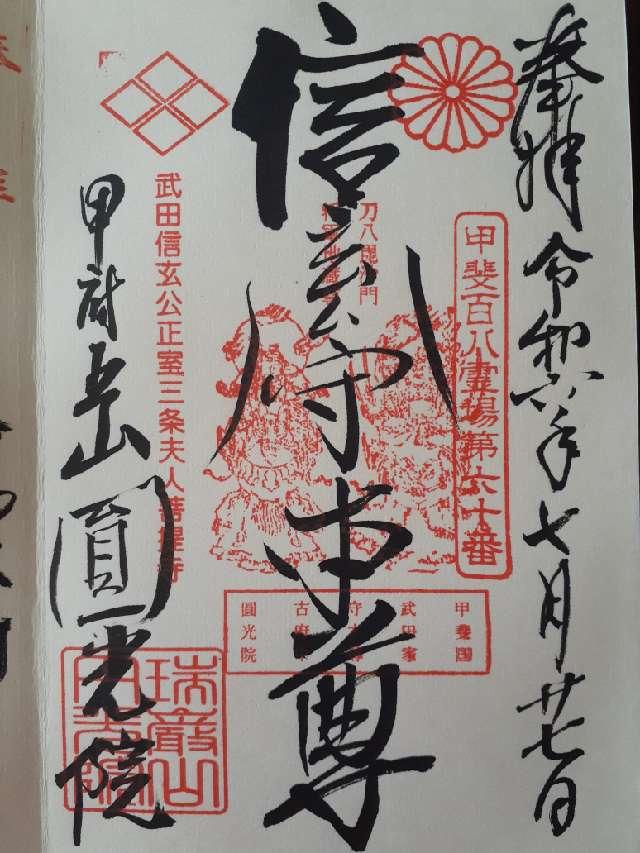 奉拝 令和六年七月廿七日
甲斐百八霊場第六十番
刀八毘沙門
信玄公守本尊
甲斐国
武田家
圓光院
武田信玄公正室三条夫人菩提寺
甲府五山圓光院
瑞巌山